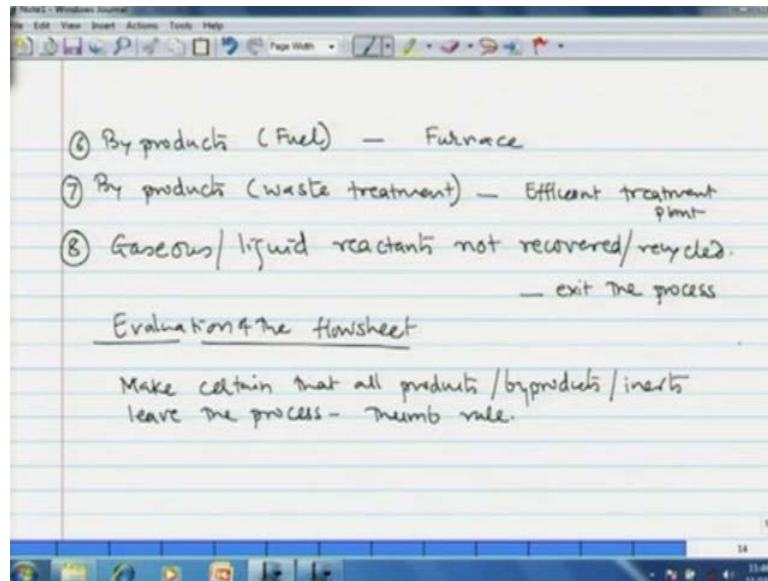 Note1 - Windows Journal
File Edit View Insert Actions Tools Help
Page Width
⑥ By products (Fuel) — Furnace
⑦ By products (waste treatment) — Efflient treatment
plant
⑧ Gaseous/liquid reactants not recovered/recycled.
— exit the process
Evaluation of the flowsheet
Make certain that all products/byproducts/inerts
leave the process - Thumb rule.
14